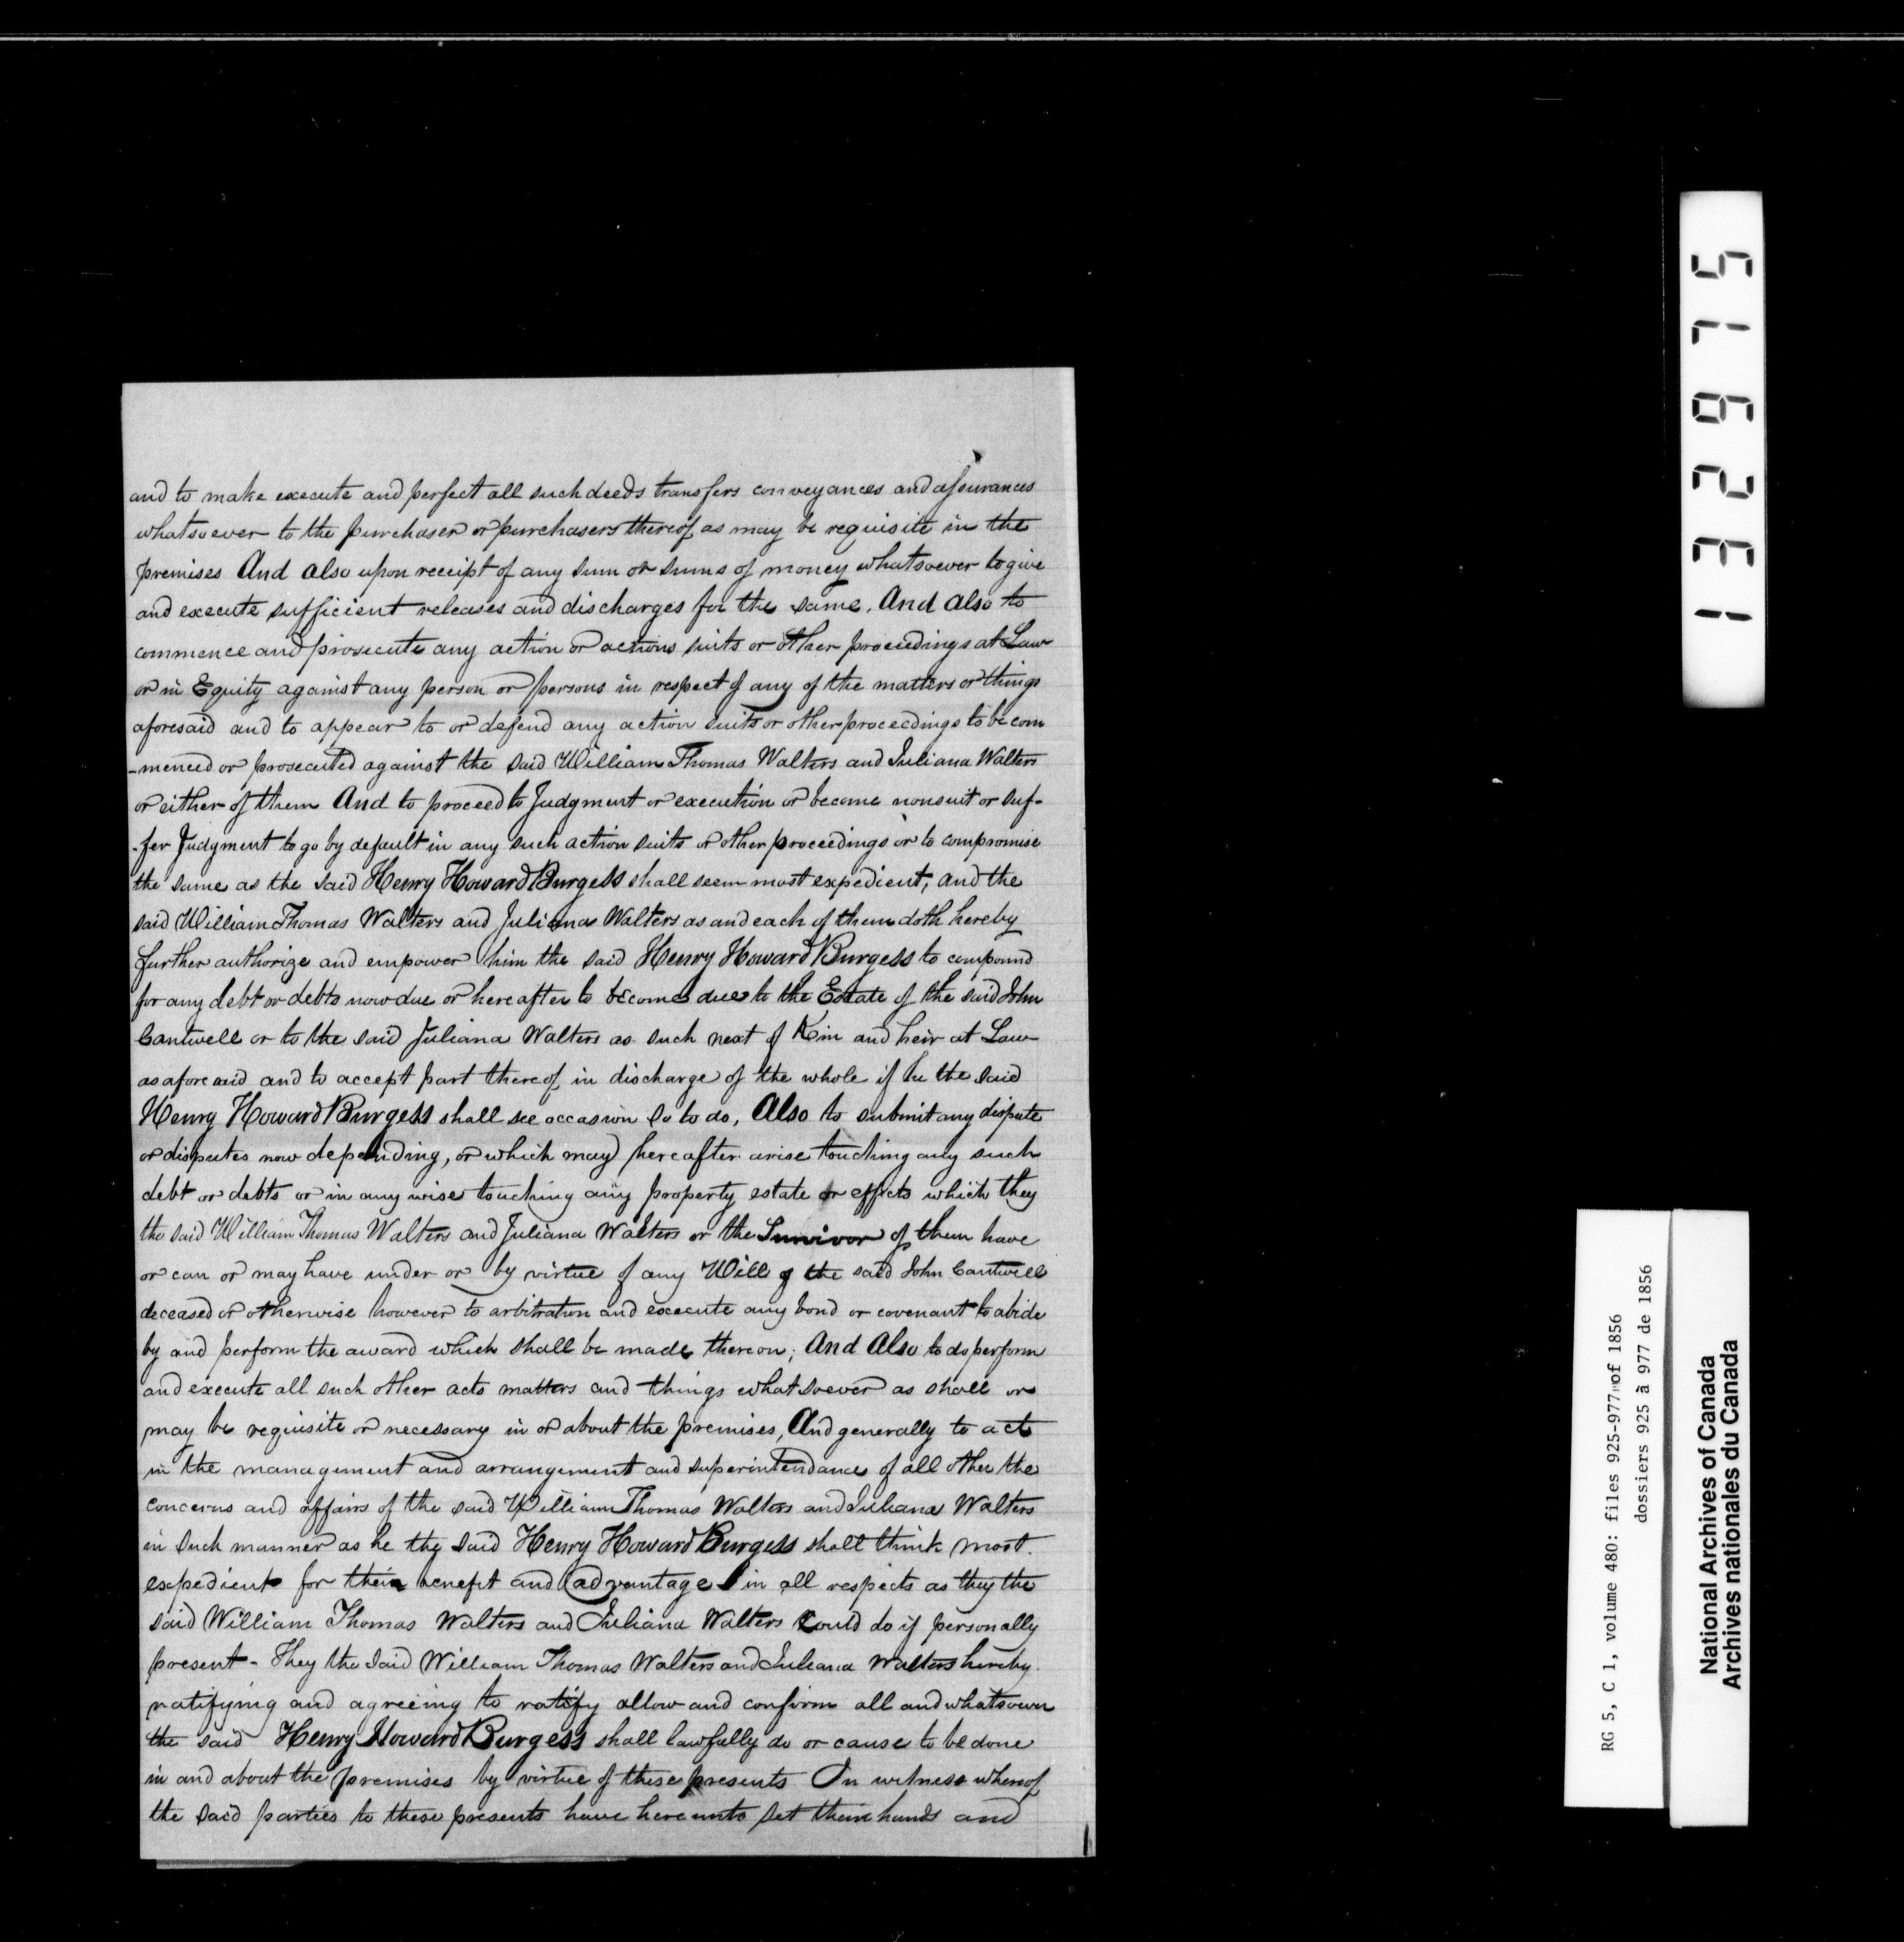 and to make execute and perfect all such deeds transfers conveyances and assurances
whatsoever to the purchaser or purchasers thereof as may be requisite in the
premises And also upon receipt of any sum or sums of money whatsoever to give
and execute sufficient releases and discharges for the same. And also to
commence and prosecute any action or actions suits or other proceedings at Law
or in Equity against any person or persons in respect of any of the matters or things
aforesaid and to appear to or defend any action suits or other proceedings to be com
-menced or prosecuted against the said William Thomas Walters and Juliana Walters
or either of them And to proceed to Judgment or execution or become nonsuit or suf-
-fer Judgment to go by default in any such action suits or other proceedings or to compromise
the same as the said Henry Howard Burgess shall seem most expedient, and the
said William Thomas Walters and Juliana Walters as and each of them doth hereby
further authorize and empower him the said Henry Howard Burgess to compound
for any debt or debts now due or hereafter to become due to the Estate of the said John
Cantwell or to the said Juliana Walters as such next of Kin and heir at Law
as aforesaid and to accept part thereof in discharge of the whole if he the said
Henry Howard Burgess shall see occasion so to do, Also to submit any dispute
or disputes now depending, or which may hereafter arise touching any such
debt or debts or in any wise touching any property estate or effects which they
the said William Thomas Walters and Juliana Walters or the Survivor of them have
or can or may have under or by virtue of any Will of the said John Cantwell
deceased or otherwise however to arbitration and execute any bond or covenant to abide
by and perform the award which shall be made thereon; And Also to do perform
and execute all such other acts matters and things whatsoever as shall or
may be requisite or necessary in or about the premises, And generally to act
in the management and arrangement and superintendance of all other the
concerns and affairs of the said William Thomas Walters and Juliana Walters
in such manner as he the said Henry Howard Burgess shall think most
expedient for their benefit and advantage in all respects as they the
said William Thomas Walters and Juliana Walters could do if personally
present - They the said William Thomas Walters and Juliana Walters hereby
ratifying and agreeing to ratify allow and confirm all and whatsoever
the said Henry Howard Burgess shall lawfully do or cause to be done
in and about the premises by virtue of these presents In witness whereof
the said parties to these presents have hereunto set their hands and
132975
RG 5, C 1, volume 480: files 925-977 of 1856
dossiers 925 à 977 de 1856
National Archives of Canada
Archives nationales du Canada